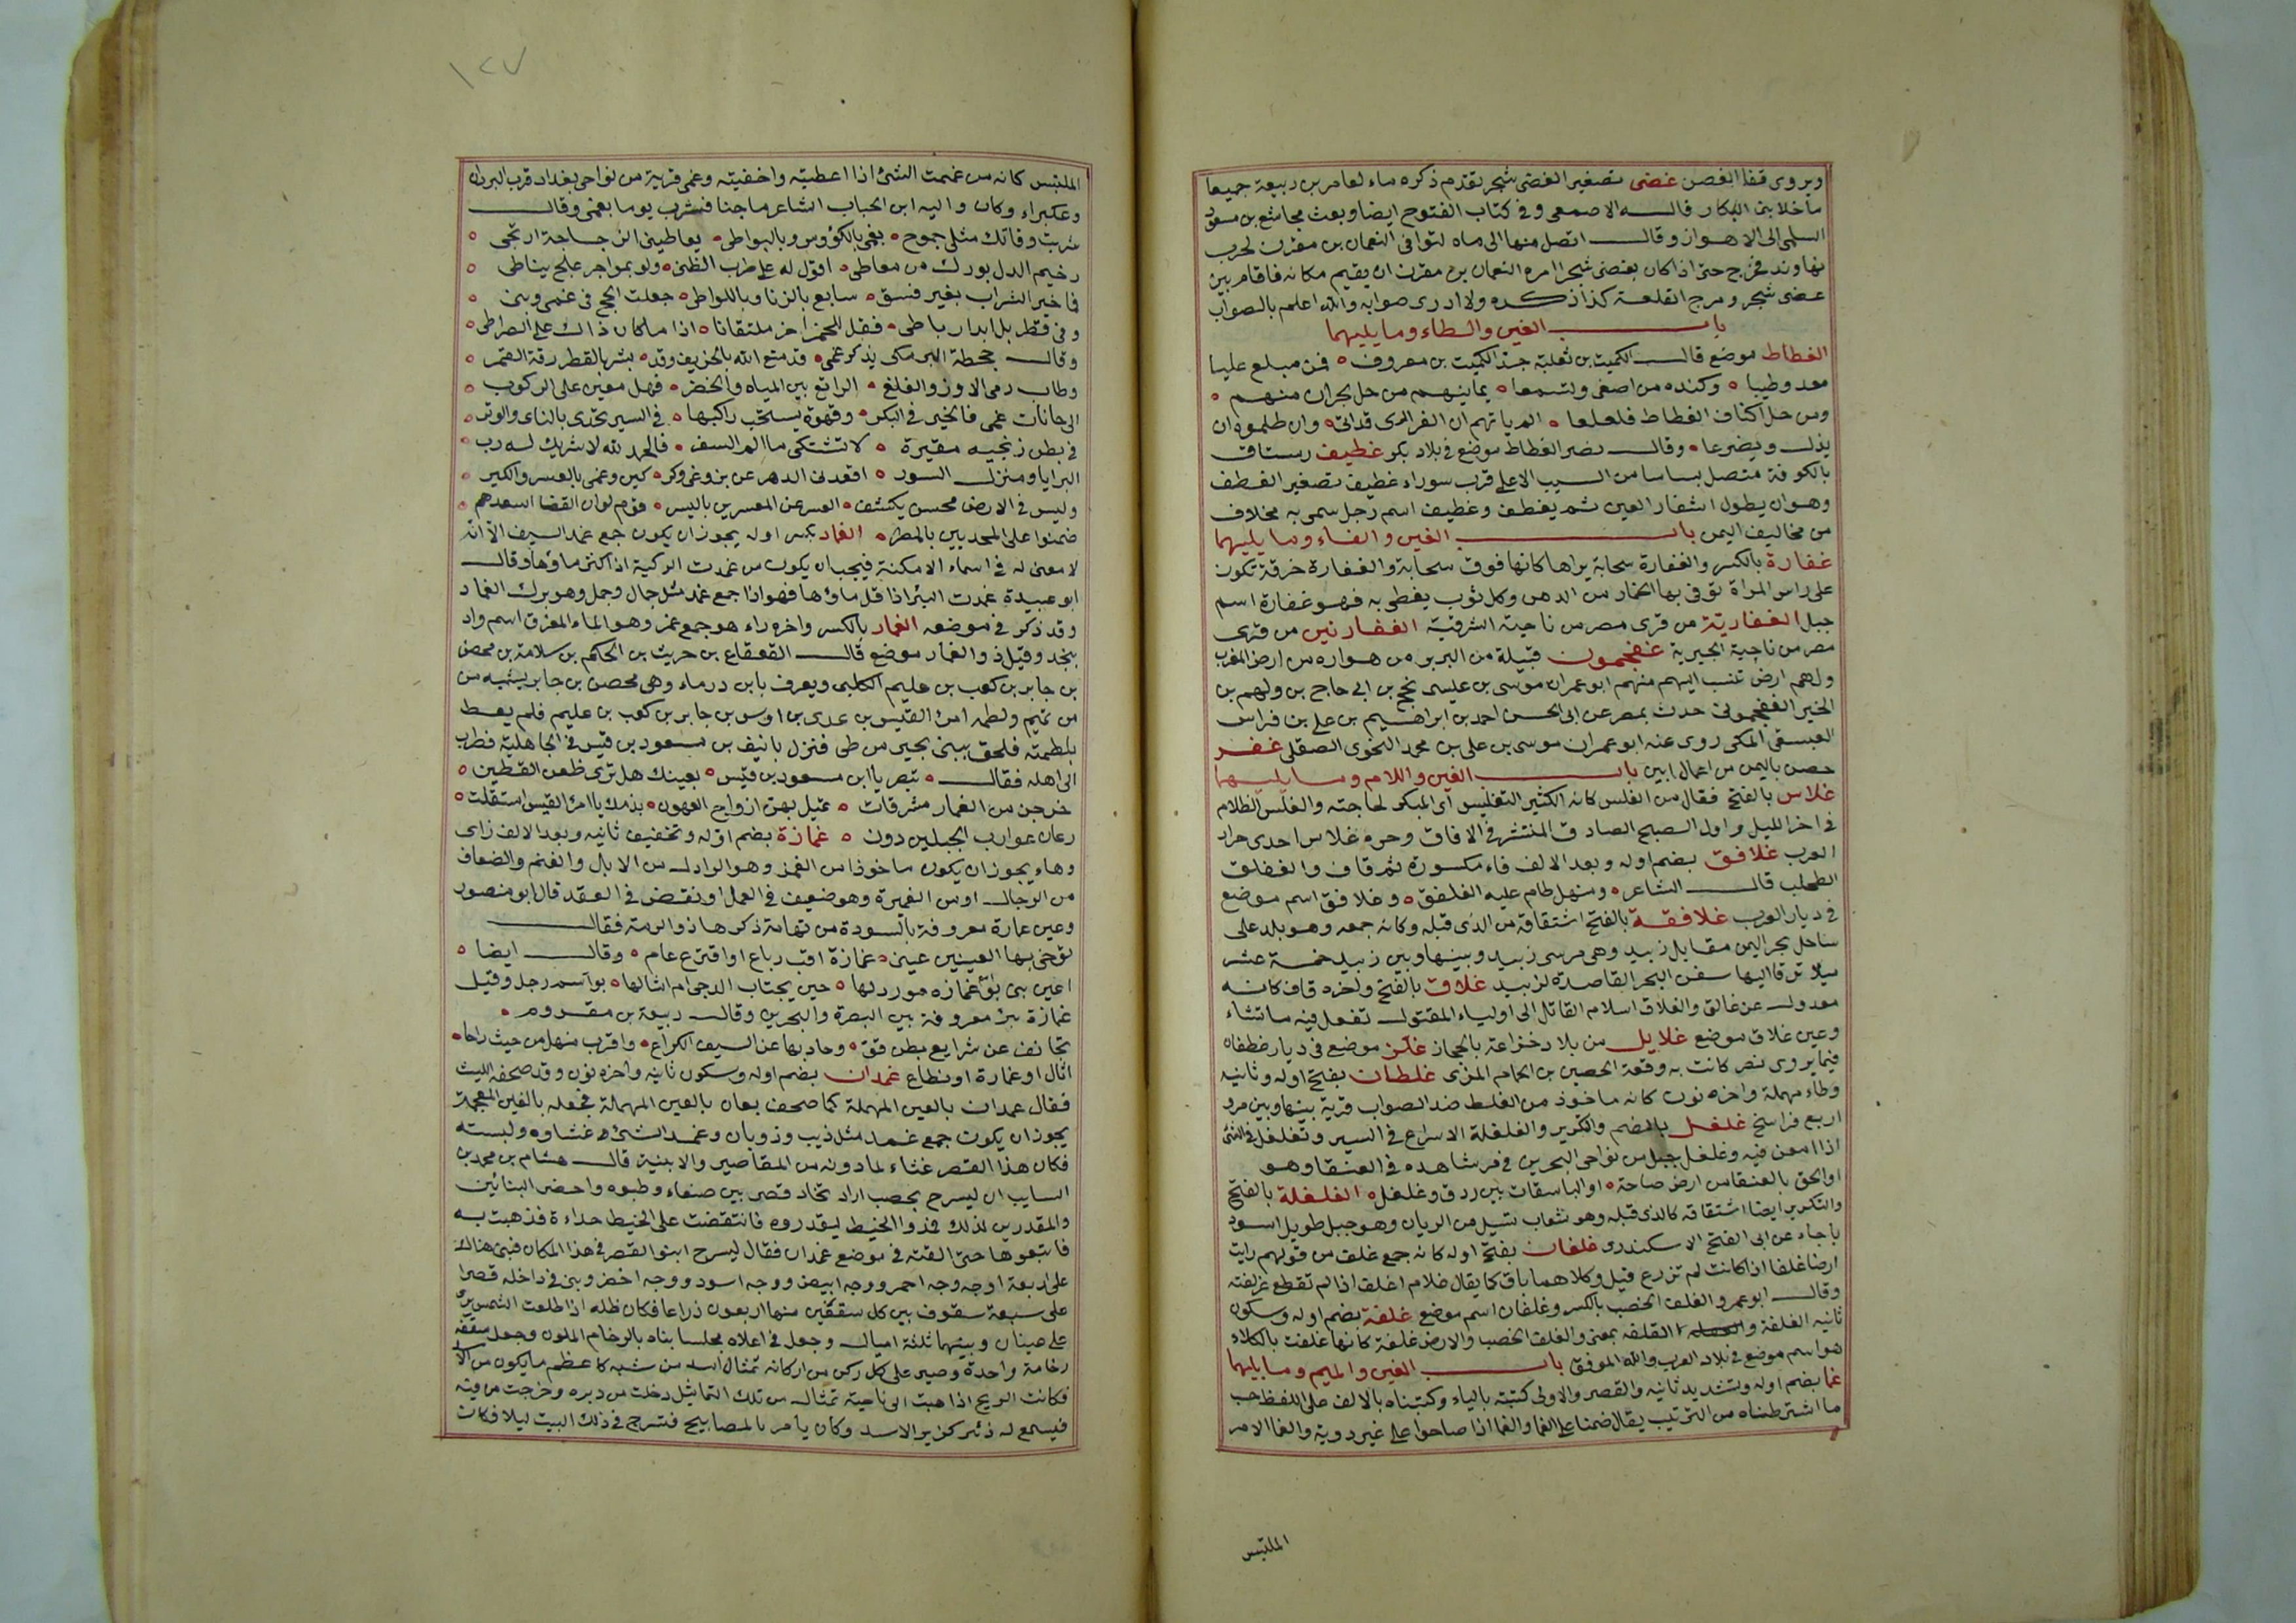 ويروى قفا الغصن غضى تصغير الغضى شجر تقدم ذكره ماء لعامر بن ربيعة جميعا
ما خلا بنى البكار قاله الاصمعى وفى كتاب الفتوح ايضا وبعث مجاشع بن مسعود
السلمى الى الاهواز وقال اتصل منها الى ماه لتوافى النعمان بن مقرن لحرب
نهاوند فخرج حتى اذا كان بغضى شجر امره النعمان بن مقرن ان يقيم مكانه فاقام بين
غضى شجر ومرج القلعة كذا ذكره ولا ادرى صوابه والله اعلم بالصواب
باب الغين والطاء وما يليهما
الغطاط موضع قال الكميت بن ثعلبة جد الكميت بن معروف ه فمن مبلغ عليا
معد وطيبا ه وكنده من اصغى وتسمعا ه يمانيهم من حل بحران منهم ه
ومن حل اكناف الغطاط فلعلعا ه الم ياتهم ان الفزارى قد اتى ه وان ظلموه ان
يذل ويضرعا ه وقال نصر الغطاط موضع فى بلاد بكر غطيف رستاق
بالكوفة متصل بساسا من السيب الاعلى قرب سوراء غطيف تصغير الغطف
وهو ان يطول اشفار العين ثم يغطف وغطيف اسم رجل سمى به مخلاف
من مخاليف اليمن باب الغين والفاء وما يليهما
غفارة بالكسر والغفارة سحابة يراها كانها فوق سحابة والغفارة خرقة تكون
على راس المراة توقى بها الخمار من الدهن وكل ثوب يغطى به فهو غفارة اسم
جبل الغفارية من قرى مصر من ناحية الشرقية الغفارنين من قرى
مصر من ناحية الجيزية غفجمون قبيلة من البربر من هواره من ارض المغرب
ولهم ارض تنسب اليهم منهم ابو عمران موسى بن عليسى بن نجح بن ابى حاج بن ولهم بن
الخير الغفجمونى حدث بمصر عن ابى الحسن احمد بن ابراهيم بن على بن فراس
العبسقى المكى روى عنه ابو عمران موسى بن على بن محمد النحوى الصقلى غفر
حصن باليمن من اعمال ابين باب الغين واللام وما يليهما
غلاس بالفتح فقال من الغلس كانه الكثير التغليس اى المبكر لحاجته والغلس الظلام
فى اخر الليل واول الصبح الصادق المنتشر فى الافاق وحره غلاس احدى حرار
العرب غلافق بضم اوله وبعد الالف فاء مكسورة ثم قاف والغفلق
الطحلب قال الشاعر ه ومنهل طام عليه الغلفق ه وغلافق اسم موضع
فى ديار العرب غلافقة بالفتح اشتقاقه من الذى قبله وكانه جمعه وهو بلد على
ساحل بحر اليمن مقابل زبيد وهى مرسى زبيد وبينها وبين زبيد خمسة عشر
ميلا ترقا اليها سفن البحر القاصدة لزبيد غلاق بالفتح واخره قاف كانه
معدول عن غالق والغلاق اسلام القاتل الى اولياء المقتول تفعل فيه ما تشاء
وعين غلاق موضع غلايل من بلاد خزاعة بالحجاز غلّن موضع فى ديار غطفان
فيما يروى نصر كانت به وقعة الحصين بن الحمام المزى غلطان بفتح اوله وثانيه
وطاء مهملة واخره نون كانه ماخوذ من الغلط ضد الصواب قرية بينها وبين مرو
اربع فراسخ غلغل بالضم والتكرير والغلغلة الاسراع فى السير وتغلغل فى الشئ
اذا امعن فيه وغلغل جبل من نواحى البحرين فى قر شاهده فى العنقا وهو
او الحق بالعنقا من ارض صاحة ه او الباسقات بين ردق وغلغل ه الغلغلة بالفتح
والتكرير ايضا اشتقاقه كالذى قبله وهو شعاب تسيل من الريان وهو جبل طويل اسود
باجاء عن ابى الفتح الاسكندرى غلفان بفتح اوله كانه جمع غلف من قولهم رايت
ارضا غلفا اذا كانت لم تزرع قبل وكلاهما باق كما يقال غلام اغلف اذا لم تقطع غرلفته
وقال ابو عمرو الغلف الخصب بالكسر وغلفان اسم موضع غلفة بضم اوله وسكون
ثانيه الغلفة والقلفه بمعنى والغلف الخصب والارض غلفة كانها غلفت بالكلاء
هو اسم موضع فى بلاد العرب والله الموفق باب الغين والميم وما يليهما
غما بضم اوله وتشديد ثانيه والقصر والاولى كتبته بالياء وكتبناه بالالف على اللفظ حب
ما اشترطناه من الترتيب يقال ضمنا على الغما والغما اذا صاحوا على غير دوية والغما الامر
الملتبس
١٢٧
الملتبس كانه من غممت الشئ اذا اعطيته واخفيته وغمى قرية من نواحى بغداد قرب البردان
وعكبراء وكان واليه ابن الحباب الشاعر ماجنا فشرب يوما بغمى وقال
شربت وفاتك مثلى جموح ه بغمى بالكؤوس وبالبواطى ه يعاطينى الزجاجة اريحى ه
رخيم الدل بورك من معاطى ه اقول له على طرب الظنى ه ولو بمواجر علج نباطى ه
فاخير الشراب بغير فسق ه سابع بالزنا وباللواطى ه جعلت الحج فى غمى وبنى ه
وفى قطربل ابدا رباطى ه فقل للحمز اخر ملتقانا ه اذا ما كان ذاك على الصراطى ه
وقال جحظة البرمكى يذكر غمى ه قد متع الله بالخريف وقد ه بشر بالقطر رقة القمر ه
وطاب رمى الاوز والغلغ ه الراتع بين المياه والخضر ه فهل معين على الركوب ه
الى حانات غمى فالخير فى البكر ه وقهوة يستحب راكبها ه فى السير تحدى بالناى والوتر ه
فى بطن زنجيه مقيرة ه لا تشتكى ما الم السفر ه فالحمد لله لا شريك له رب ه
البرايا ومنزل السور ه اقعدنى الدهر عن بزوغى وكر ه كين وغمى بالعسر والكبر ه
وليس فى الارض محسن يكشف ه العسر عن المعسرين باليسر ه قوم لو ان القضا اسعدهم ه
ضمنوا على المجدبين بالمطر ه الغماد بكسر اوله يجوز ان يكون جمع غمد السيف الا انه
لا معنى له فى اسماء الامكنة فيجب ان يكون من غمدت الركية اذا كثر ماؤها وقال
ابو عبيدة غمدت البئر اذا قل ماؤها فهو اذا جمع غمد مثل جمال وجمل وهو برك الغماد
وقد ذكر فى موضعه الغمار بالكسر واخره راء هو جمع غمر وهو الماء المغرق اسم واد
بنجد وقيل ذو الغمار موضع قال القعقاع بن حريث بن الحكم بن سلامة بن محصن
بن جابر بن كعب بن عليم الكلبى ويعرف بابن درماء وهى محصن بن جابر يشبه من
من تميم ولطمه امرئ القيس بن عدى بن اوس بن جابر بن كعب بن عليم فلم يعط
بلطمته فلحق ببنى بحير من طى فنزل بانيف بن مسعود بن قيس فى الجاهلية فطرب
الى اهله فقال ه تبصر يا ابن مسعود بن قيس ه بعينك هل ترى ظعن القطين ه
خرجن من الغمار مشرقات ه تميل بهن ازواج العهون ه بذمك يا امرئ القيس استقلت ه
رعان عوارب الجبلين دون ه غمازة بضم اوله وتخفيف ثانيه وبعد الالف زاى
وهاء يجوز ان يكون ماخوذا من الغمز وهو الرادل من الابل والغنم والضعاف
من الرجال اومن الغميزة وهو ضعيف فى العمل او نقض فى العقد قال ابو منصور
وعين غمازة معروفة بالسودة من تهامة ذكرها ذو الرمة فقال
توخى بها العينين عينى ه غمازة اقب رباع او اقترع عام ه وقال ايضا ه
اعين بنى بؤ غمازه مورد لها ه حين يجتاب الدجى ام اثالها ه بوا اسم رجل وقيل
غمازة بئر معروفة بين البصرة والبحرين وقال ربيعة بن مقروم ه
تجانف عن شرايع بطن قو ه وحاد بها عن السيف الكراع ه واقرب منهل من حيث راحا ه
اثال او غمازة او نطاع غمدان بضم اوله وسكون ثانيه واخره نون وقد صحفه الليث
فقال عمدان بالعين المهملة كما صحف بعاث بالعين المهملة فجعله بالغين المعجمة
يجوز ان يكون جمع غمد مثل ذيب وذوبان وغمد الشئ غشاوه ولبسته
فكان هذا القصر غشاء لما دونه من المقاصير والابنية قال هشام بن محمد بن
السايب ان ليسرح بحصب اراد تخاد قصر بين صنعاء وطيوه واحضر البنائين
والمقدرين لذلك فذوا الخيط ليقدروه فانتقضت على الخيط حداءة فذهبت به
فاتبعوها حتى القته فى موضع غمدان فقال ليسرح ابنوا القصر فى هذا المكان فبنى هناك
على اربعة اوجه وجه احمر ووجه ابيض ووجه اسود ووجه اخضر وبنى فى داخله قصرا
على سبعة سقوف بين كل سقفين منها اربعون ذراعا فكان ظله اذا طلعت الشمس يرى
على عينان وبينهما ثلثة اميال وجعل فى اعلاه مجلسا بناه بالرخام الملون وجعل سقفه
رخامة واحدة وصير على كل ركن من اركانه تمثال اسد من شبه كاعظم ما يكون من الاسد
فكانت الريح اذا هبت الى ناحية تمثال من تلك التماثيل دخلت من دبره وخرجت من فيه
فيسمع له زئير كزير الاسد وكان يامر بالمصابيح فتسرج فى ذلك البيت ليلا فكان